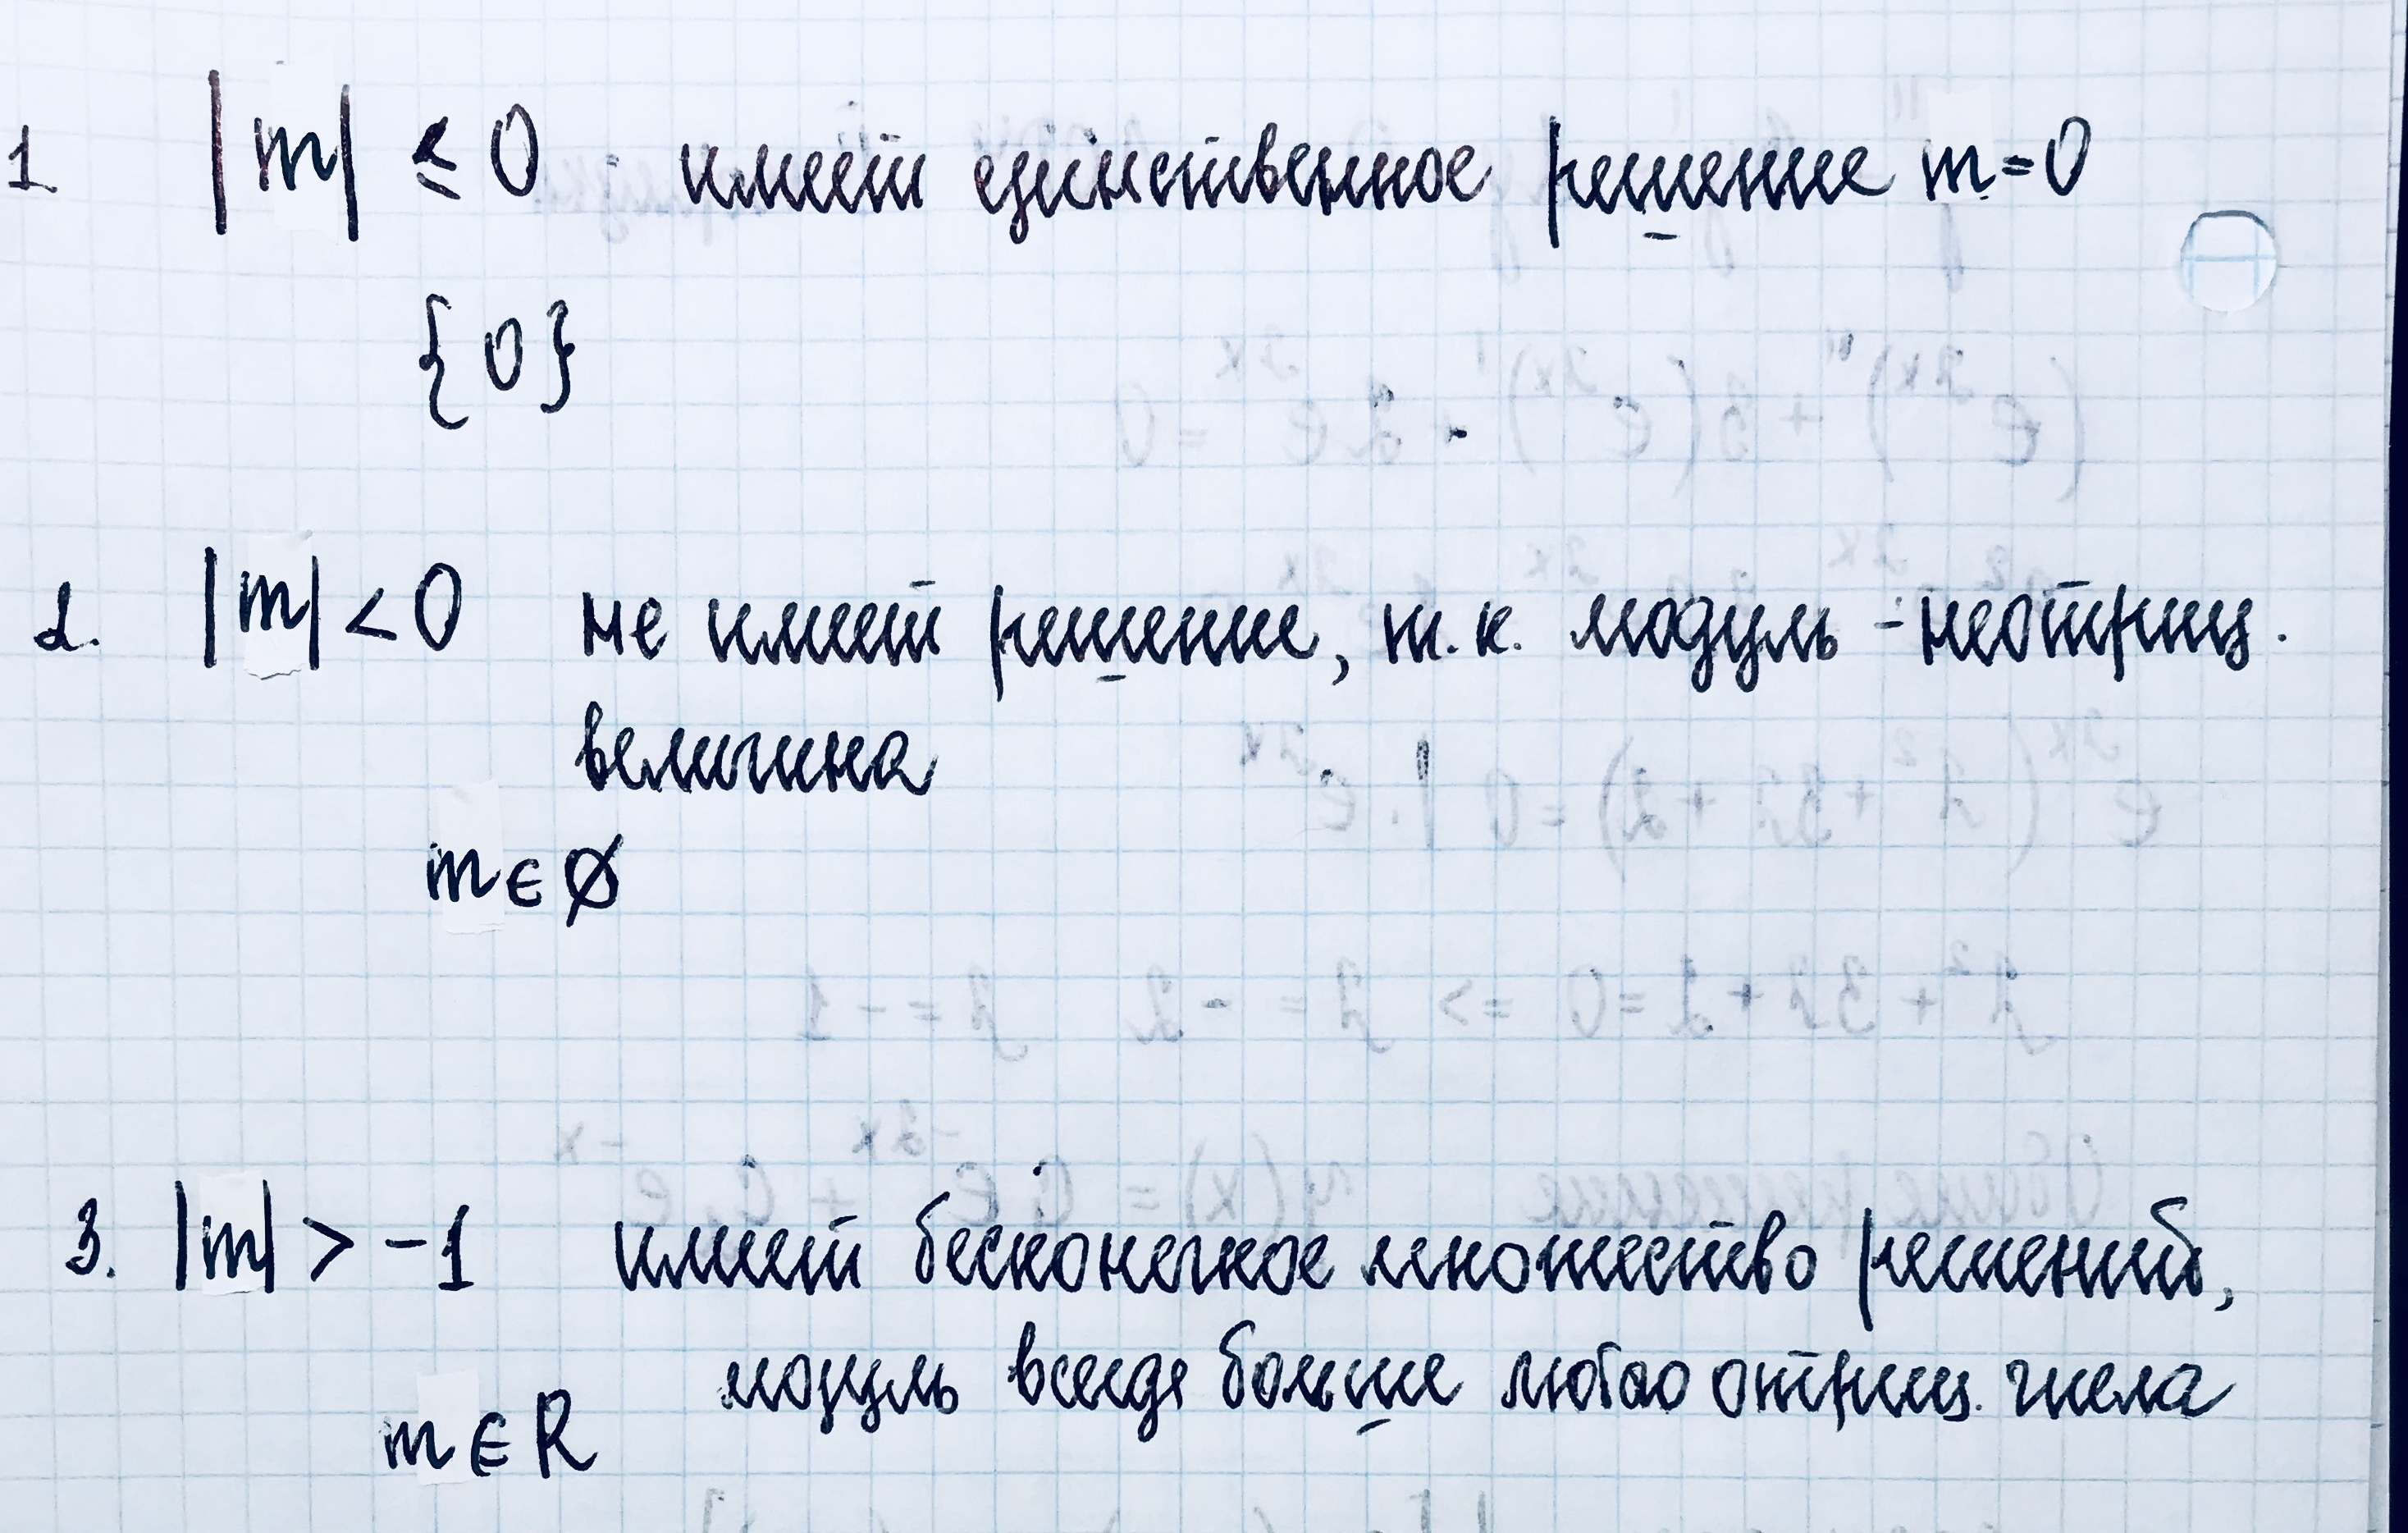 1. |m| ≤ 0 имеет единственное решение m=0
{0}
2. |m| < 0 не имеет решение, т.к. модуль - неотриц.
величина
m ∈ Ø
3. |m| > -1 имеет бесконечное множество решений,
модуль всегда больше любого отриц. числа
m ∈ R